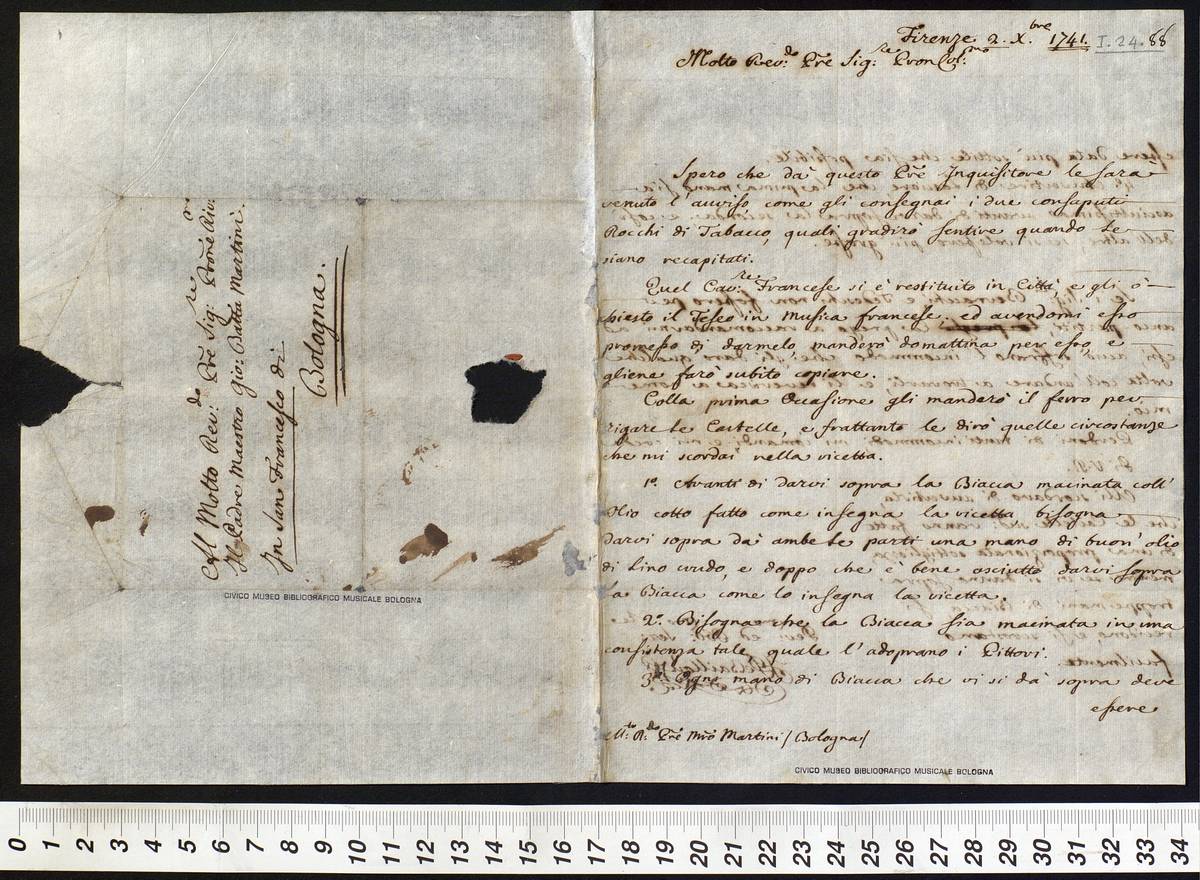 Al Molto Rev:do Prē Sig:re Prōne Riv:
Il Padre Maestro Gio: Batta Martini.
In San Franceſco di
Bologna.
CIVICO MUSEO BIBLIOGRAFICO MUSICALE BOLOGNA
Firenze 2. Xbre 1741. I.24.88
Molto Rev:do Prē Sig:re Pron Col:mo
Spero che da questo Prē Inquisitore le sarà
venuto l'avviſo come gli consegnai i due consaputi
Rocchi di Tabacco, quali gradirò sentire quando le
siano recapitati.
Quel Cav:re Francese si è restituito in Città e gli ò
chiesto il Teseo in Musica francese. ed avendomi eſso
promeſso di darmelo manderò domattina per eſso, e
gliene farò subito copiare.
Colla prima Occasione gli manderò il ferro per
rigare le Cartelle, e frattanto le dirò quelle circostanze
che mi scordai nella ricetta.
1º. Avanti di darvi sopra la Biacca macinata coll'
Olio cotto fatto come insegna la ricetta bisogna
darvi sopra da ambe le parti una mano di buon'olio
di lino crudo, e doppo che è bene asciutto darvi sopra
la Biacca come lo insegna la ricetta.
2º. Biſogna che la Biacca ſia macinata in una
consistenza tale quale l'adoprano i Pittori.
3º. Ogni mano di Biacca che vi si dà sopra deve
eſsere
M:to R:do Prē Mrō Martini / Bologna /
CIVICO MUSEO BIBLIOGRAFICO MUSICALE BOLOGNA
0 1 2 3 4 5 6 7 8 9 10 11 12 13 14 15 16 17 18 19 20 21 22 23 24 25 26 27 28 29 30 31 32 33 34